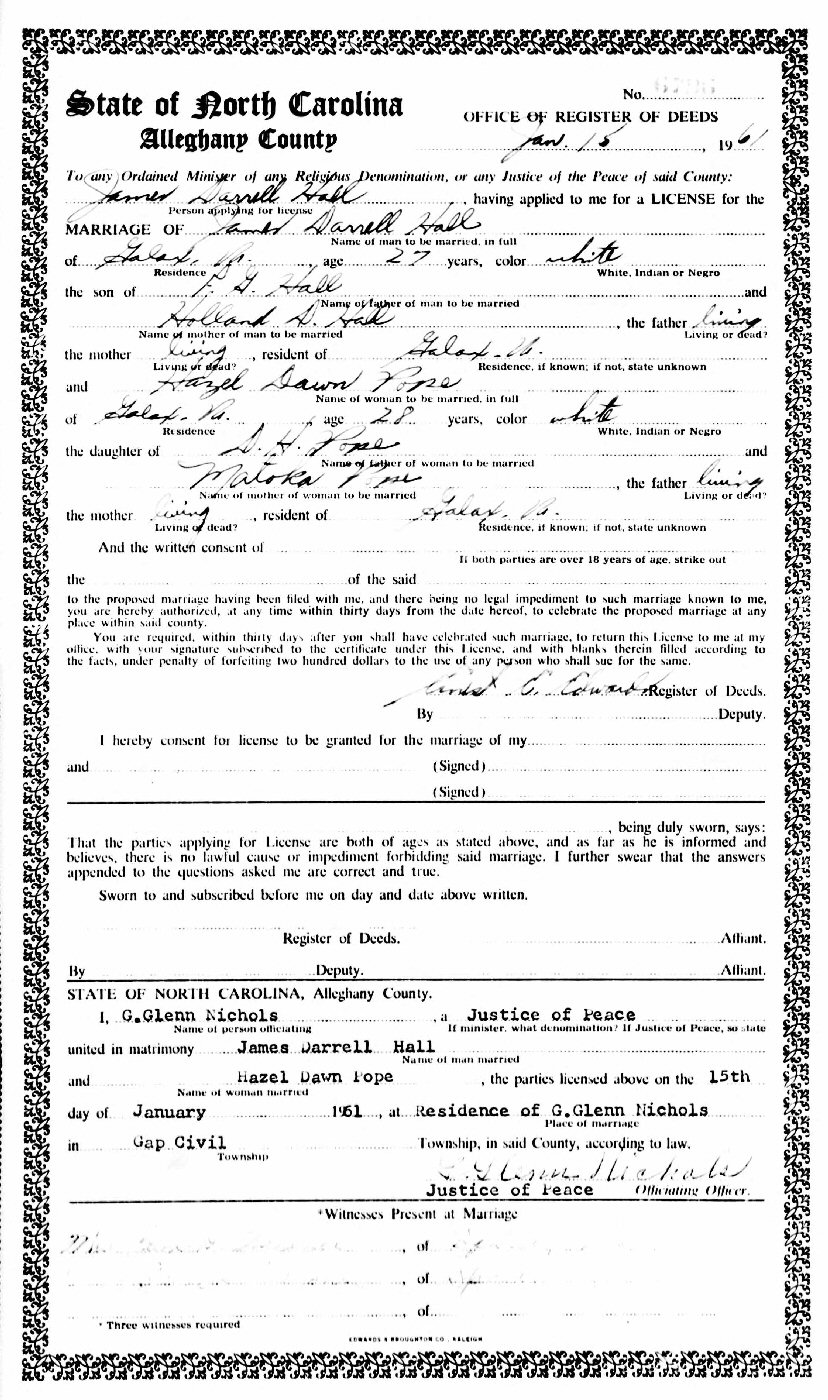 No.
State of North Carolina
OFFICE OF REGISTER OF DEEDS
Alleghany County
Jan. 15, 1961
To any Ordained Minister of any Religious Denomination, or any Justice of the Peace of said County:
James Darrell Hall, having applied to me for a LICENSE for the
Person applying for license
MARRIAGE OF James Darrell Hall
Name of man to be married, in full
of Galax, Va. age 27 years, color white
Residence White, Indian or Negro
the son of F. G. Hall and
Name of father of man to be married
Holland D. Hall, the father living
Name of mother of man to be married Living or dead?
the mother living, resident of Galax, Va.
Living or dead? Residence, if known; if not, state unknown
and Hazel Dawn Pope
Name of woman to be married, in full
of Galax, Va., age 28 years, color white
Residence White, Indian or Negro
the daughter of D. H. Pope and
Name of father of woman to be married
Matoka Pope, the father living
Name of mother of woman to be married Living or dead?
the mother living, resident of Galax, Va.
Living or dead? Residence, if known; if not, state unknown
And the written consent of
If both parties are over 18 years of age, strike out
the of the said
to the proposed marriage having been filed with me, and there being no legal impediment to such marriage known to me,
you are hereby authorized, at any time within thirty days from the date hereof, to celebrate the proposed marriage at any
place within said county.
You are required, within thirty days after you shall have celebrated such marriage, to return this License to me at my
office, with your signature subscribed to the certificate under this License, and with blanks therein filled according to
the facts, under penalty of forfeiting two hundred dollars to the use of any person who shall sue for the same.
E. Edwards Register of Deeds.
By Deputy.
I hereby consent for license to be granted for the marriage of my
and (Signed)
(Signed)
, being duly sworn, says:
That the parties applying for License are both of ages as stated above, and as far as he is informed and
believes, there is no lawful cause or impediment forbidding said marriage. I further swear that the answers
appended to the questions asked me are correct and true.
Sworn to and subscribed before me on day and date above written.
Register of Deeds. Affiant.
By Deputy. Affiant.
STATE OF NORTH CAROLINA, Alleghany County.
I, G.Glenn Nichols, a Justice of Peace
Name of person officiating If minister, what denomination? If Justice of Peace, so state
united in matrimony James Darrell Hall
Name of man married
and Hazel Dawn Pope, the parties licensed above on the 15th
Name of woman married
day of January 1961, at Residence of G.Glenn Nichols
Place of marriage
in Gap Civil Township, in said County, according to law.
Township
G. Glenn Nichols
Justice of Peace Officiating Officer.
*Witnesses Present at Marriage
, of
, of
, of
* Three witnesses required
EDWARDS & BROUGHTON CO., RALEIGH